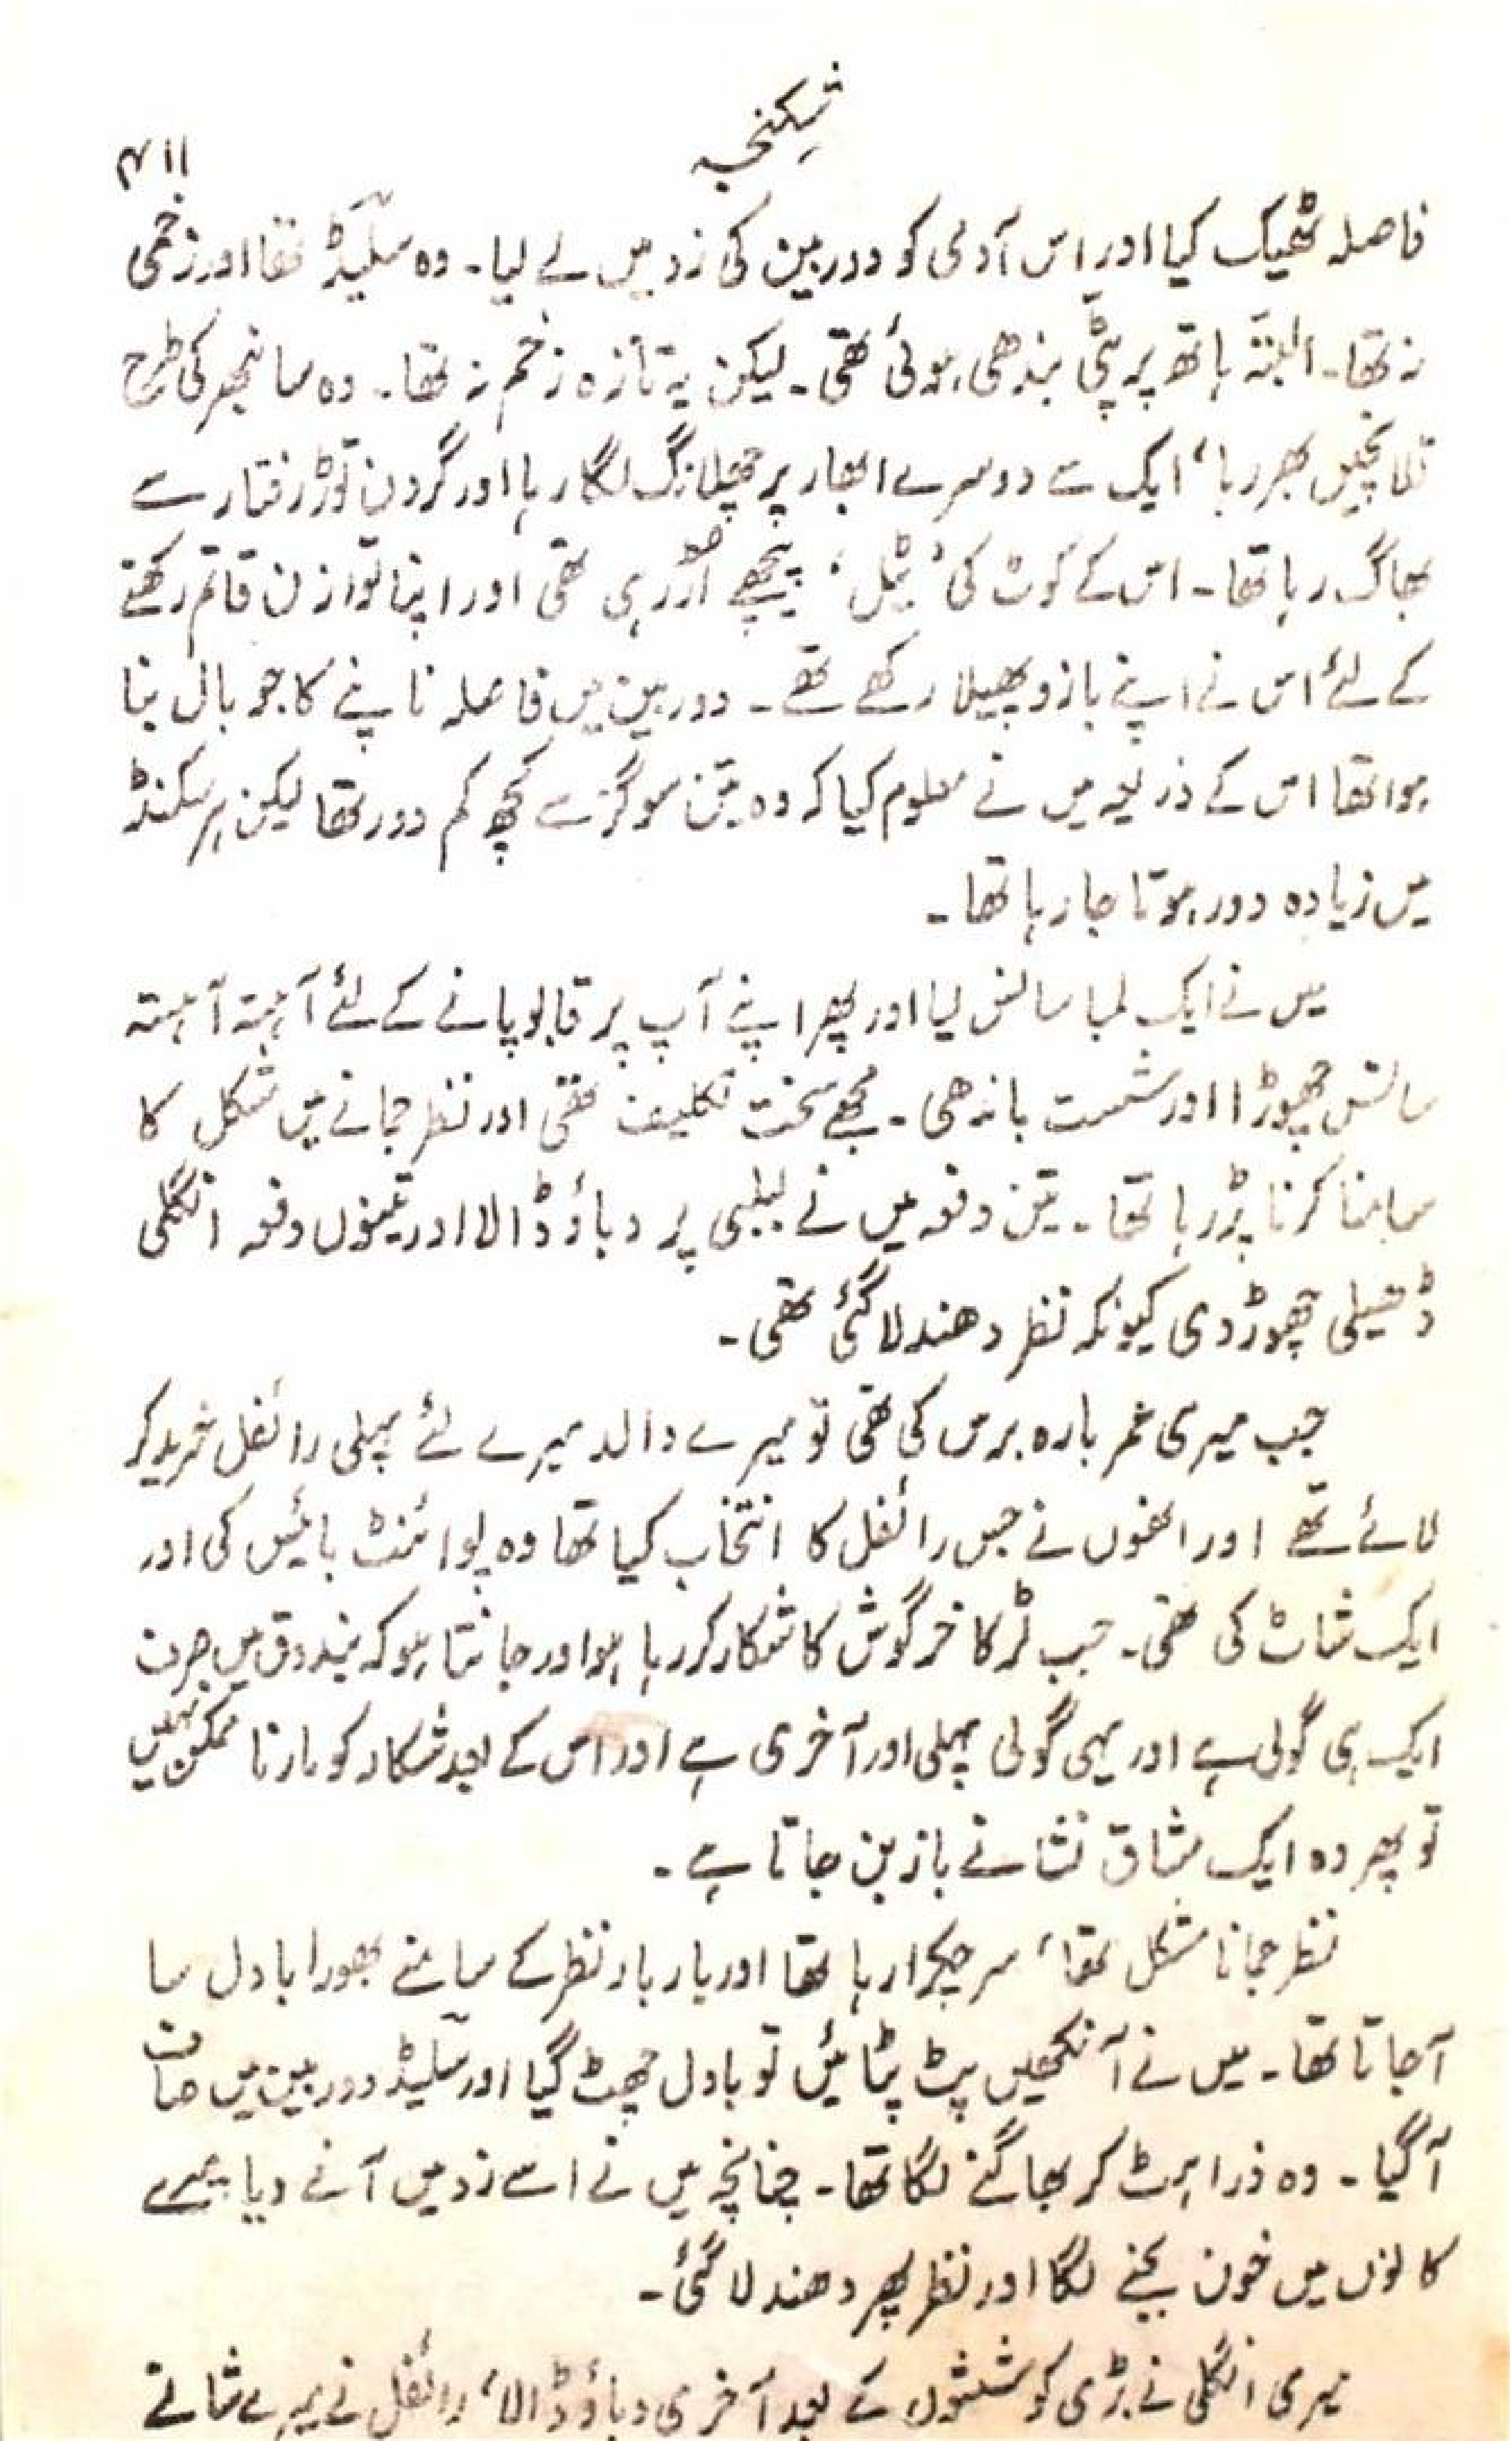 شکنجہ
۴۱۱
فاصلہ ٹھیک کیا اور اس آدمی کو دوربین کی زد میں لے لیا۔ وہ سلیڈ تھا اور زخمی
نہ تھا۔ البتہ ہاتھ پر پٹی بندھی ہوئی تھی۔ لیکن یہ تازہ زخم نہ تھا۔ وہ سانبھر کی طرح
قلانچیں بھر رہا، ایک سے دوسرے ابھار پر چھلانگ لگا رہا اور گردن توڑ رفتار سے
بھاگ رہا تھا۔ اس کے کوٹ کی ’ٹیل‘ پیچھے اڑ رہی تھی اور اپنا توازن قائم رکھنے
کے لئے اس نے اپنے بازو پھیلا رکھے تھے۔ دوربین میں فاصلہ ناپنے کا جو بال بنا
ہوا تھا اس کے ذریعہ میں نے معلوم کیا کہ وہ تین سو گز سے کچھ کم دور تھا لیکن ہر سکنڈ
میں زیادہ دور ہوتا جا رہا تھا۔
میں نے ایک لمبا سانس لیا اور پھر اپنے آپ پر قابو پانے کے لئے آہستہ آہستہ
سانس چھوڑا اور شست باندھی۔ مجھے سخت تکلیف تھی اور نظر جمانے میں مشکل کا
سامنا کرنا پڑ رہا تھا۔ تین دفعہ میں نے لبلبی پر دباؤ ڈالا اور تینوں دفعہ انگلی
ڈھیلی چھوڑ دی کیونکہ نظر دھندلا گئی تھی۔
جب میری عمر بارہ برس کی تھی تو میرے والد میرے لئے پہلی رائفل خرید کر
لائے تھے اور انھوں نے جس رائفل کا انتخاب کیا تھا وہ پوائنٹ بائیس کی اور
ایک شاٹ کی تھی۔ جب لڑکا خرگوش کا شکار کر رہا ہو اور جانتا ہو کہ بندوق میں صرف
ایک ہی گولی ہے اور یہی گولی پہلی اور آخری ہے اور اس کے بعد شکار کو مارنا ممکن نہیں
تو پھر وہ ایک مشاق نشانے باز بن جاتا ہے۔
نظر جمانا مشکل تھا، سر چکرا رہا تھا اور بار بار نظر کے سامنے بھورا بادل سا
آجاتا تھا۔ میں نے آنکھیں پٹ پٹائیں تو بادل چھٹ گیا اور سلیڈ دوربین میں صاف
آگیا۔ وہ ذرا ہٹ کر بھاگنے لگا تھا۔ چنانچہ میں نے اسے زد میں آنے دیا میرے
کانوں میں خون بجنے لگا اور نظر پھر دھندلا گئی۔
میری انگلی نے بڑی کوششوں کے بعد آخری دباؤ ڈالا، رائفل نے میرے شانے